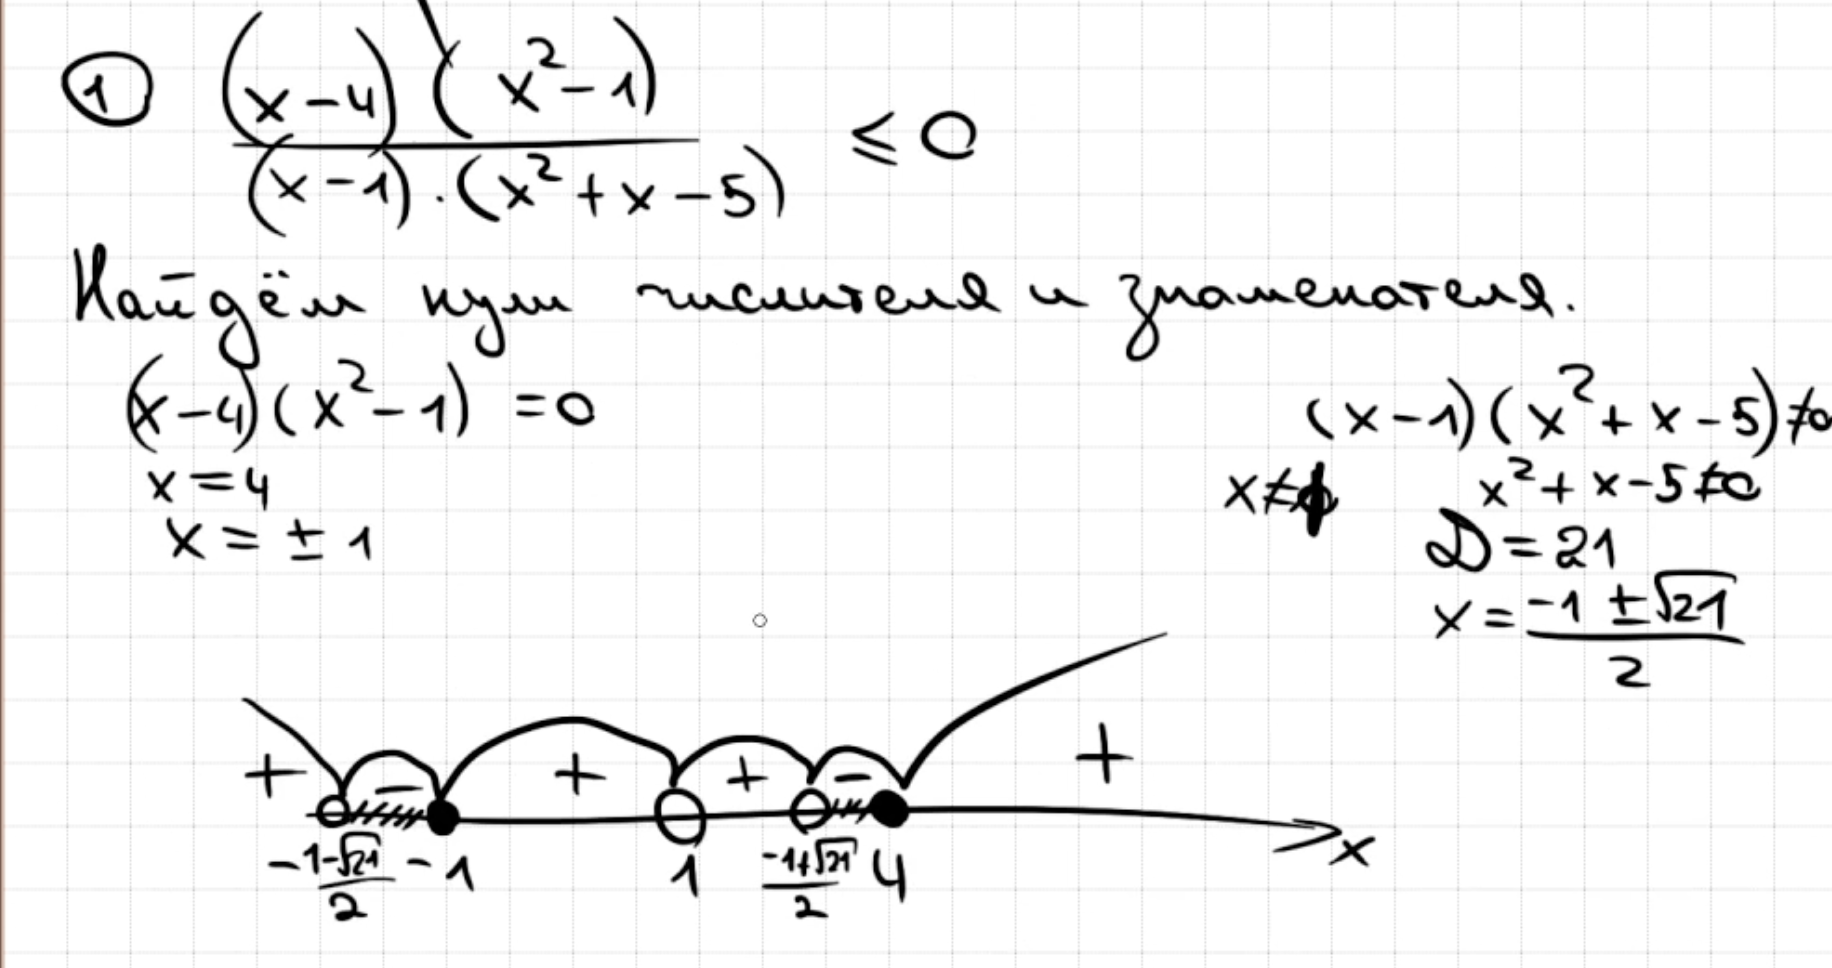 ① (x-4)(x²-1)
≤ 0
(x-1)·(x²+x-5)
Найдём нули числителя и знаменателя.
(x-4)(x²-1) =0
x=4
x = ±1
(x-1)(x²+x-5)≠0
x≠1
x²+x-5≠0
D=21
x = (-1±√21)/2
+ - + + - +
(-1-√21)/2 -1 1 (-1+√21)/2 4 x